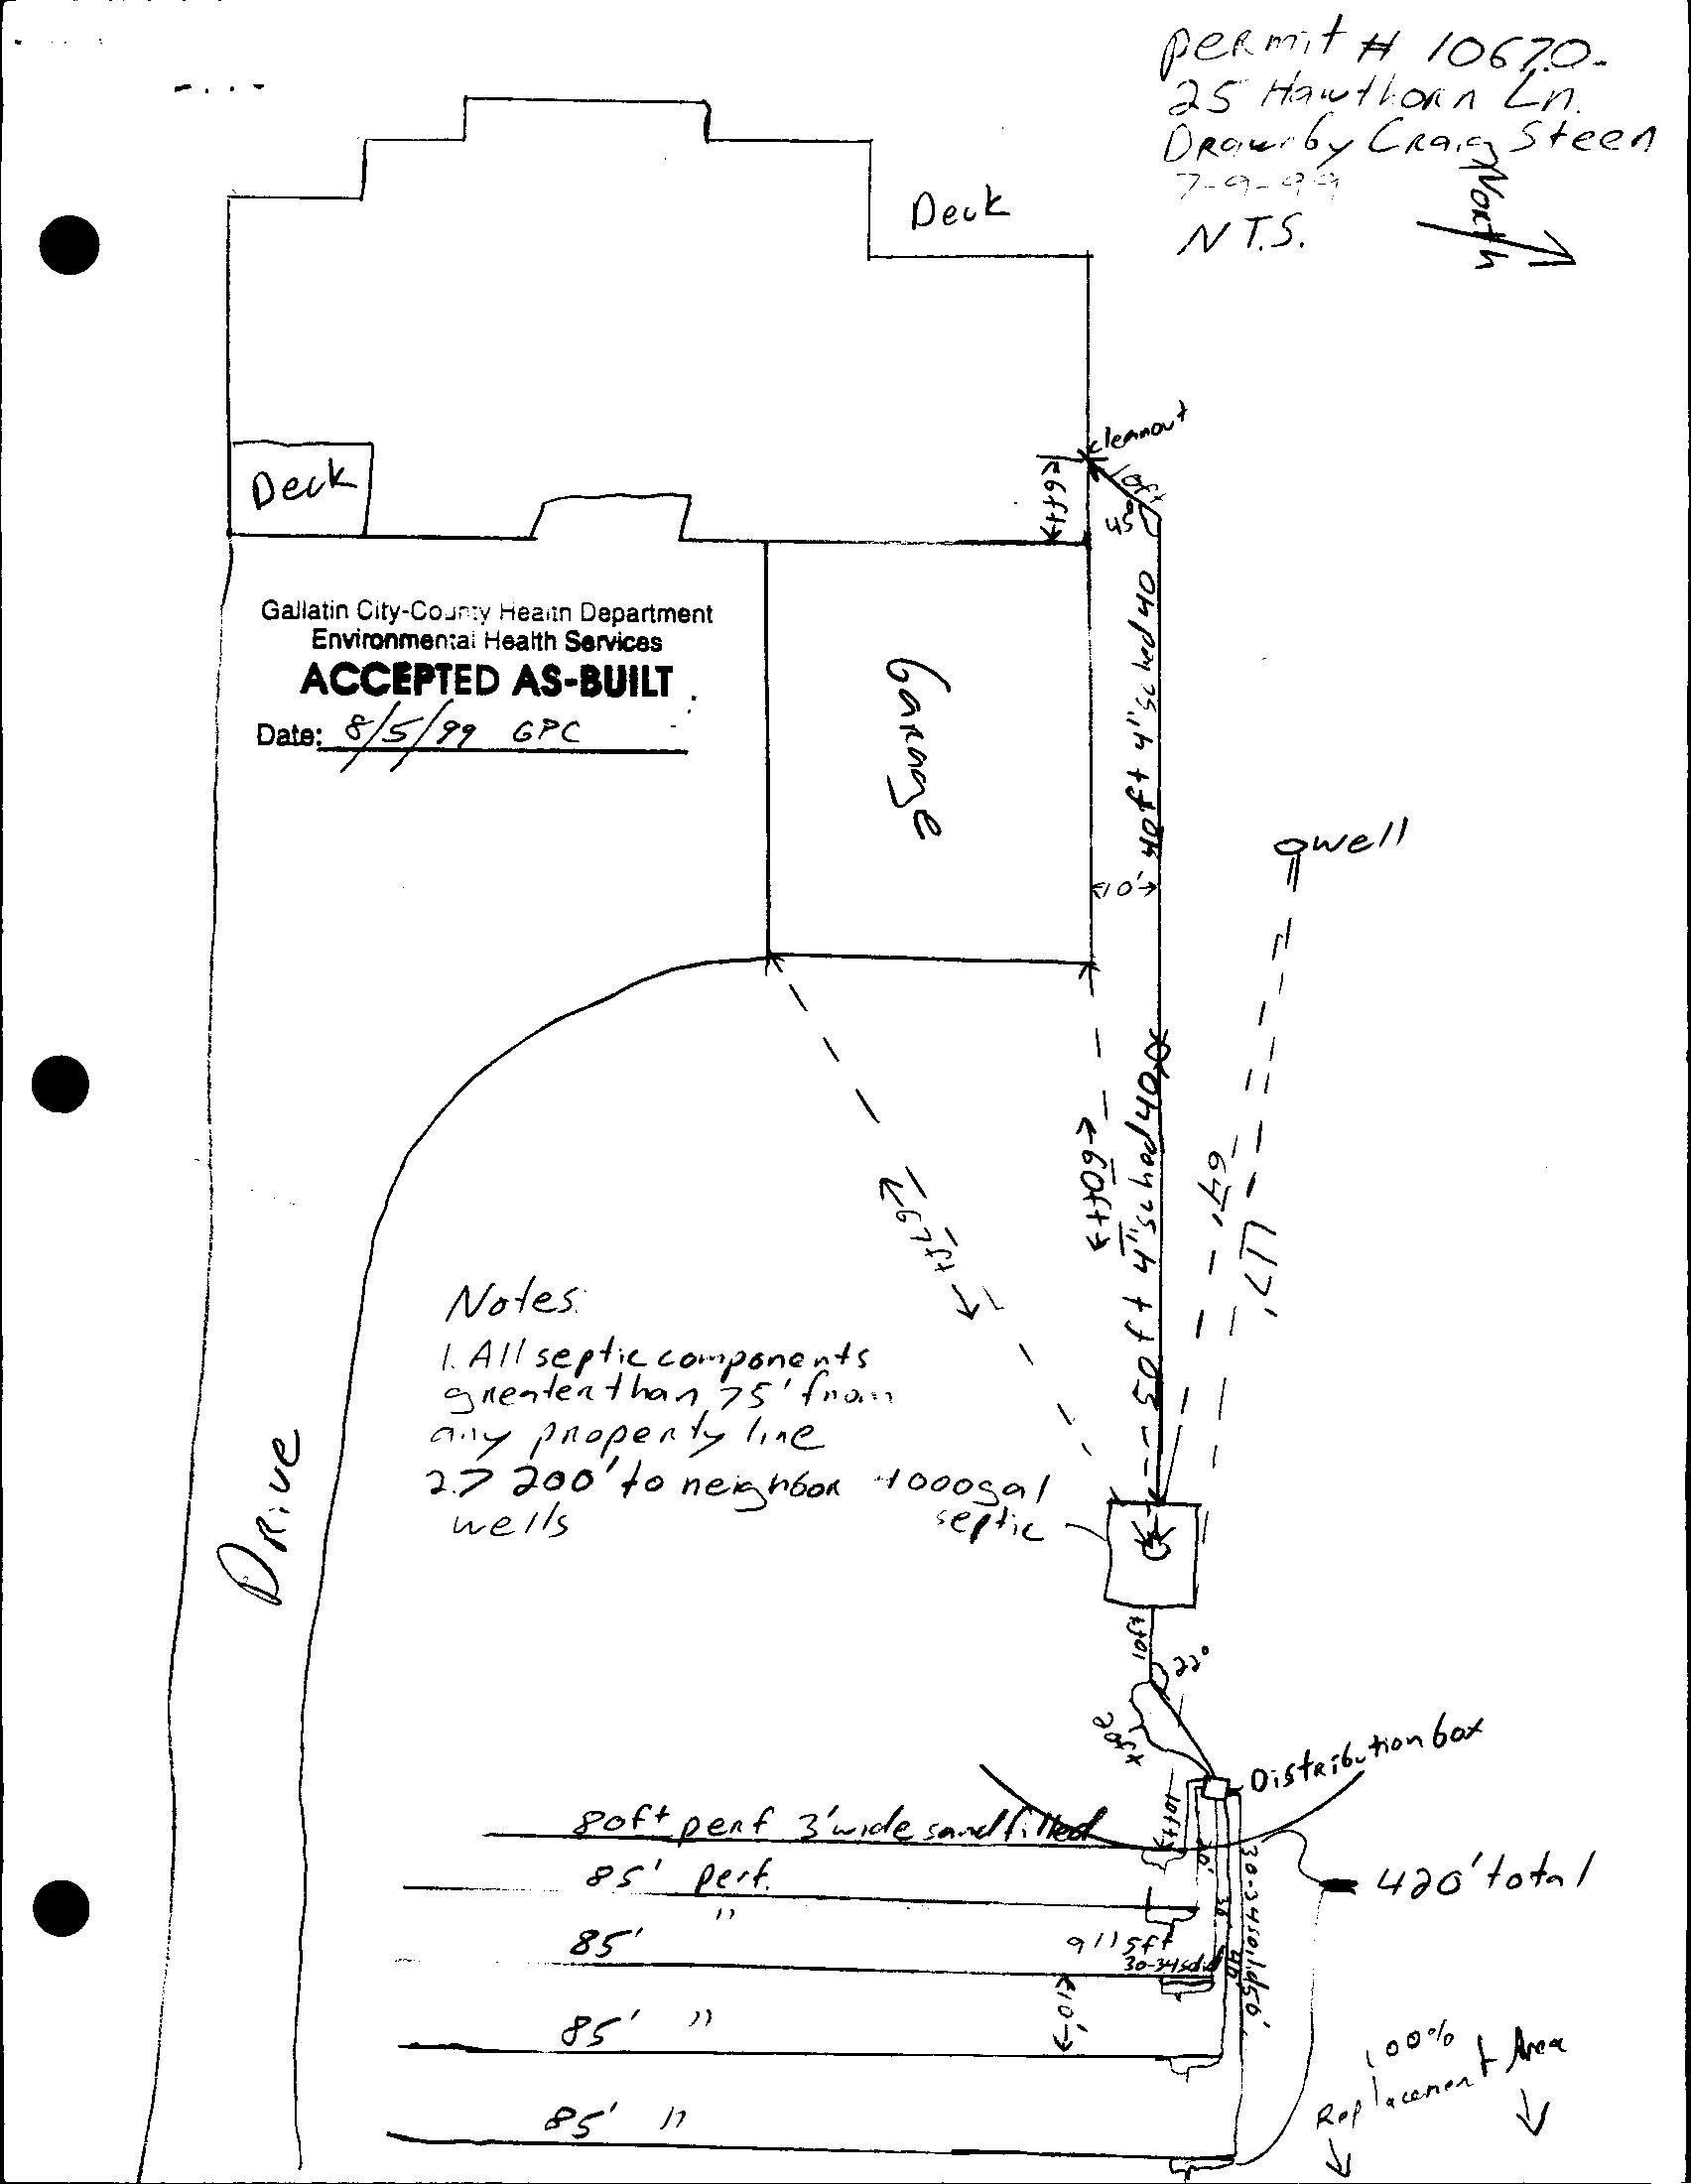 permit # 10670-
25 Hawthorn Ln.
Drawn by Craig Steen
7-9-99
N.T.S.
North
Deck
cleanout
10ft
45°
6ft
Deck
40ft 4" sched 40
Gallatin City-County Health Department
Environmental Health Services
ACCEPTED AS-BUILT
Date: 8/5/99 GPC
Garage
well
10'
50ft 4" sched 40
60ft
67ft
64'
117'
Notes:
1. All septic components
greater than 75' from
any property line
2. > 200' to neighbor
wells
1000gal
septic
Drive
10ft
22°
20ft
Distribution box
10ft
80ft perf 3' wide sand filled
20'
30-34 solid 50'
420' total
85' perf.
30
85' "
all 5ft
30-34 solid
40'
10'
85' "
100%
Replacement Area
85' "